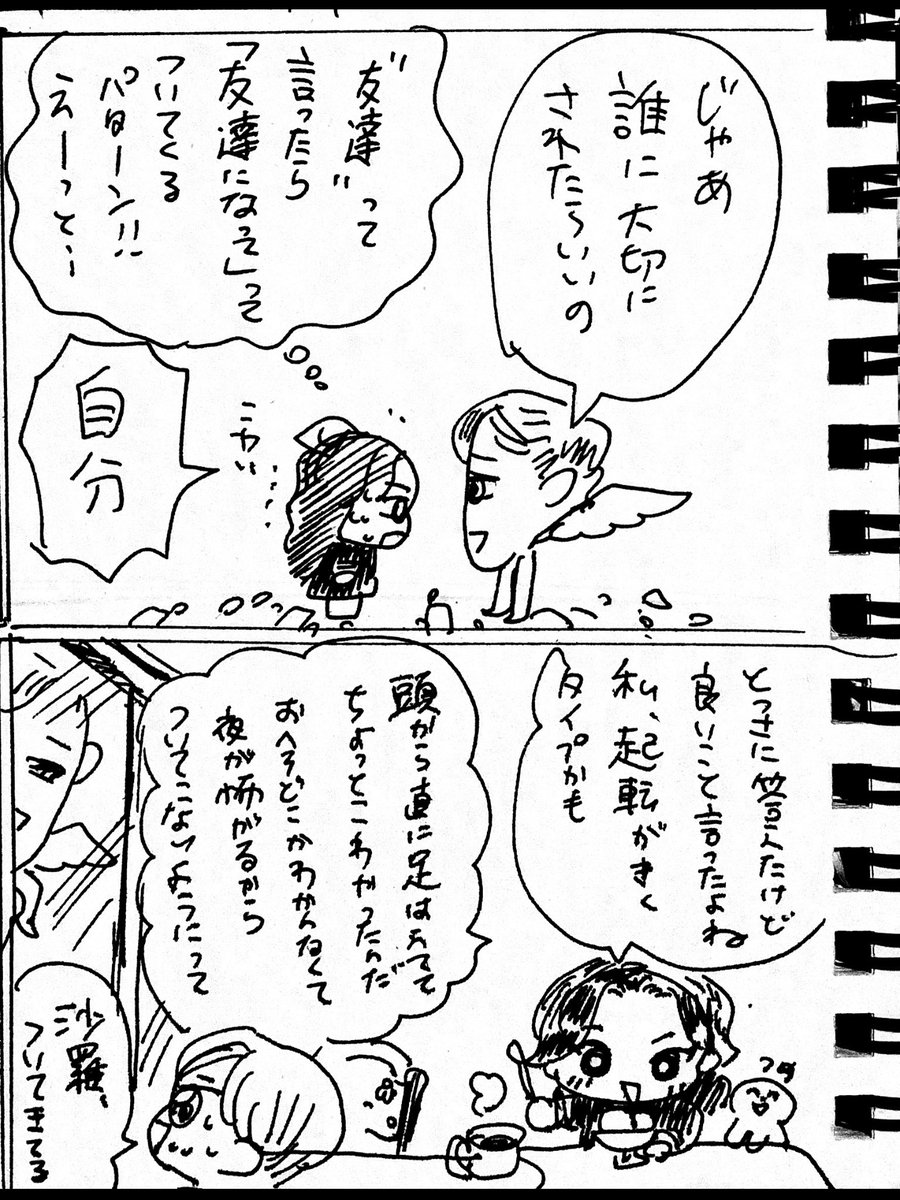 じゃあ
誰に大切に
されたらいいの
"友達"って
言ったら
「友達になって」って
ついてくる
パターン!!
えーっと…
こわい…
自分
とっさに答えたけど
良いこと言ったよね
私、起転がきく
タイプかも
頭から直に足はえてて
ちょっとこわかったんだ
おへそどこかわかんなくて
夜が怖がるから
ついてこないようにって
沙羅、
ついてきてる